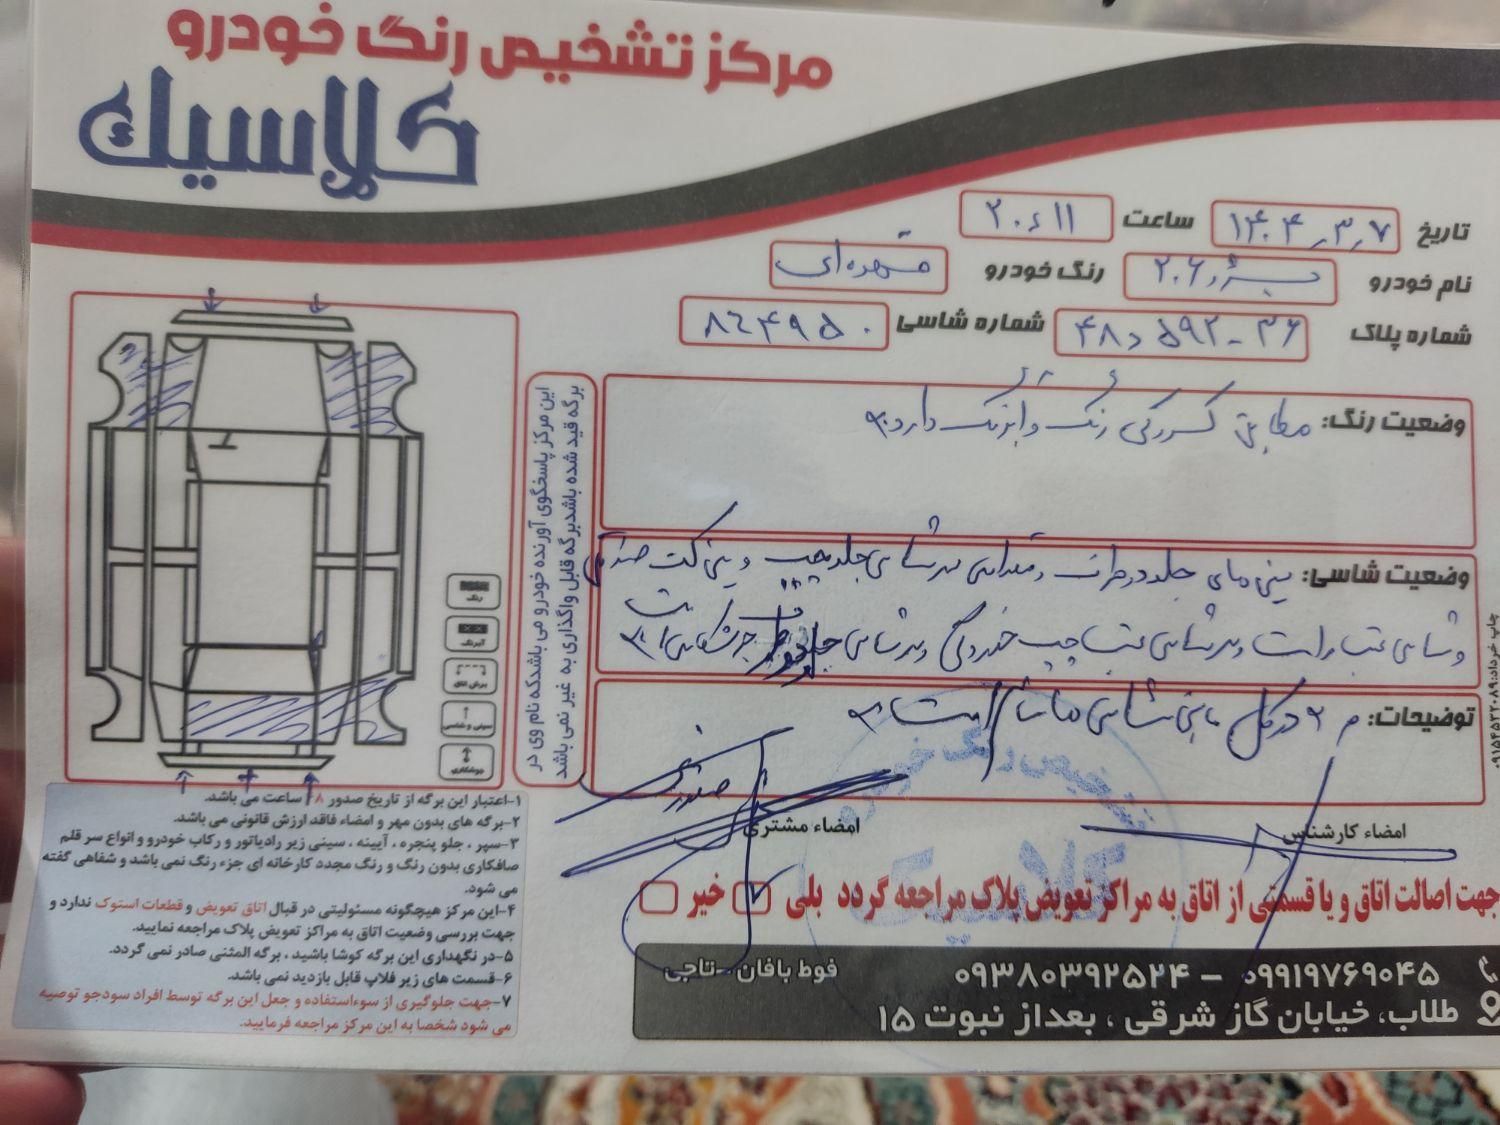 مرکز تشخیص رنگ خودرو
کلاسیک
تاریخ ۱۴۰۴٫۳٫۷ ساعت ۱۱٫۲۰
نام خودرو پژو ۲۰۶ رنگ خودرو قهوه‌ای
شماره پلاک ۳۶-۵۹۲د۴۸ شماره شاسی
وضعیت رنگ: مطابق رنگ و دارد
وضعیت شاسی: سینی های جلو و سرشاسی جلو چپ و سینی
و شاسی عقب راست و سرشاسی عقب چپ خوردگی و سرشاسی است
توضیحات: در کل شاسی است
این مرکز پاسخگوی آورنده خودرو می باشد که نام وی در
برگه قید شده باشد برگه قابل واگذاری به غیر نمی باشد
رنگ
آبرنگ
برش اتاق
سینی و شاسی
جوشکاری
چاپ خرداد: ۰۹۱۵۴۵۲۲۰۸۹
امضاء کارشناس
امضاء مشتری
جهت اصالت اتاق و یا قسمتی از اتاق به مراکز تعویض پلاک مراجعه گردد بلی خیر
۱-اعتبار این برگه از تاریخ صدور ۴۸ ساعت می باشد.
۲-برگه های بدون مهر و امضاء فاقد ارزش قانونی می باشد.
۳-سپر ، جلو پنجره ، آیینه ، سینی زیر رادیاتور و رکاب خودرو و انواع سر قلم
صافکاری بدون رنگ و رنگ مجدد کارخانه ای جزء رنگ نمی باشد و شفاهی گفته
می شود.
۴-این مرکز هیچگونه مسئولیتی در قبال اتاق تعویض و قطعات استوک ندارد و
جهت بررسی وضعیت اتاق به مراکز تعویض پلاک مراجعه نمایید.
۵-در نگهداری این برگه کوشا باشید ، برگه المثنی صادر نمی گردد.
۶-قسمت های زیر فلاپ قابل بازدید نمی باشد.
۷-جهت جلوگیری از سوءاستفاده و جعل این برگه توسط افراد سودجو توصیه
می شود شخصا به این مرکز مراجعه فرمایید.
۰۹۹۱۹۷۶۹۰۴۵ – ۰۹۳۸۰۳۹۲۵۲۴ فوط بافان - تاجی
طلاب، خیابان گاز شرقی ، بعد از نبوت ۱۵